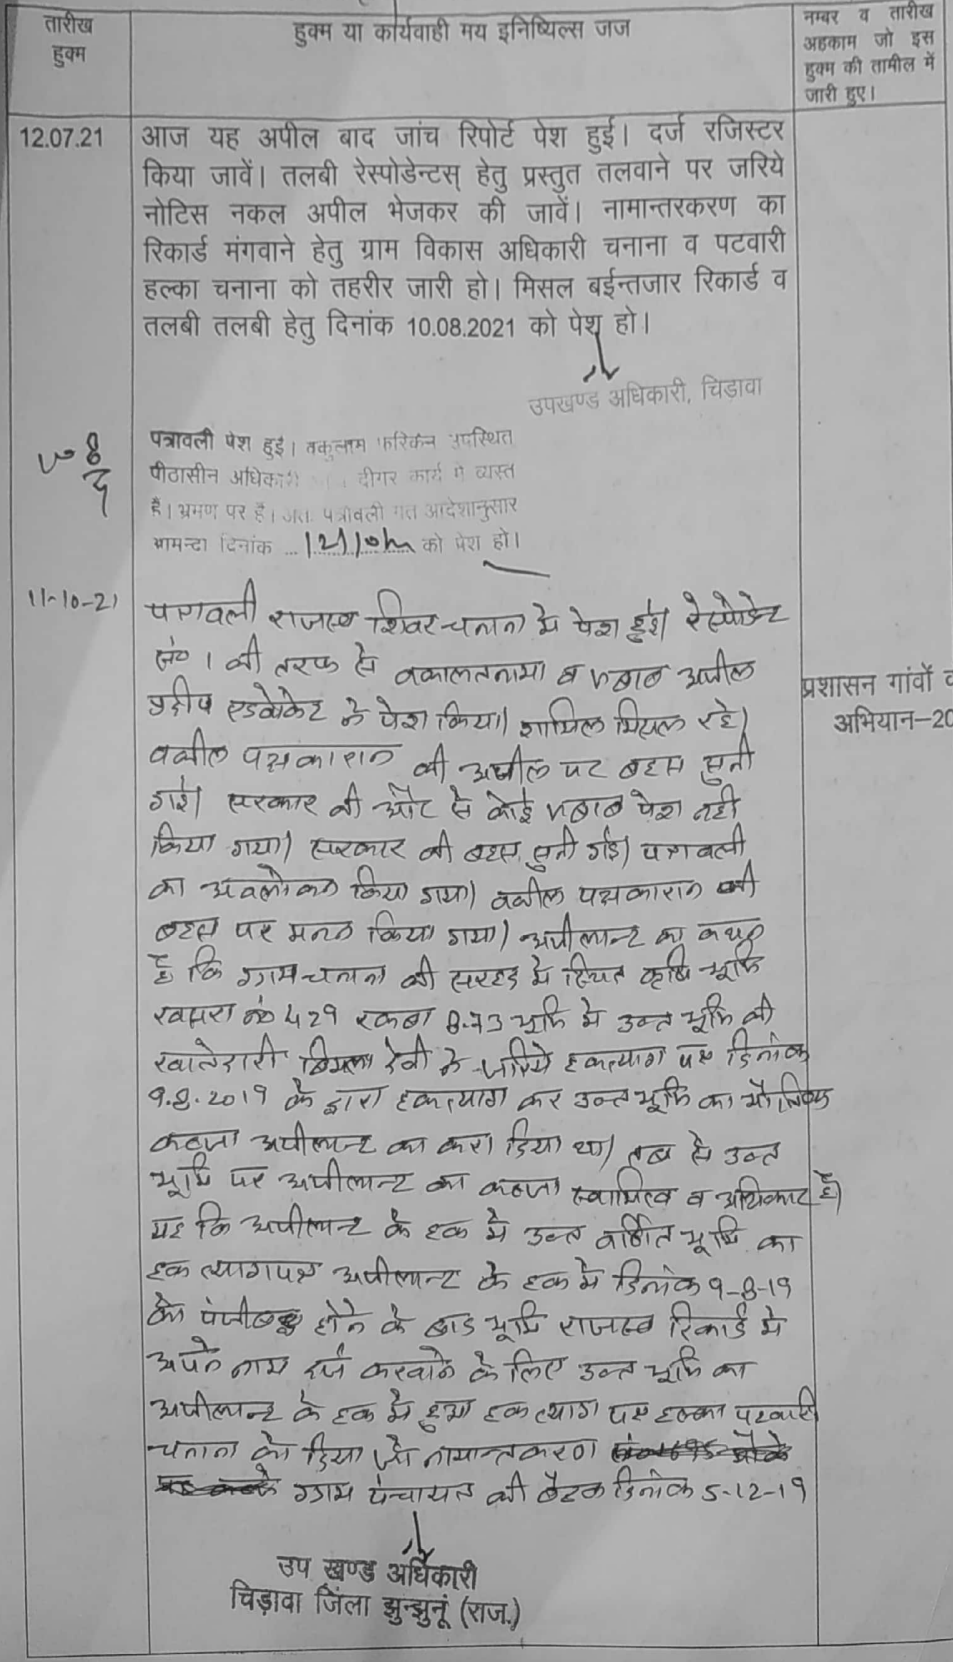 तारीख
हुक्म
हुक्म या कार्यवाही मय इनिष्यिल्स जज
नम्बर व तारीख
अहकाम जो इस
हुक्म की तामील में
जारी हुए।
12.07.21
आज यह अपील बाद जांच रिपोर्ट पेश हुई। दर्ज रजिस्टर
किया जावें। तलबी रेस्पोडेन्टस् हेतु प्रस्तुत तलवाने पर जरिये
नोटिस नकल अपील भेजकर की जावें। नामान्तरकरण का
रिकार्ड मंगवाने हेतु ग्राम विकास अधिकारी चनाना व पटवारी
हल्का चनाना को तहरीर जारी हो। मिसल बईन्तजार रिकार्ड व
तलबी तलबी हेतु दिनांक 10.08.2021 को पेश हो।
उपखण्ड अधिकारी, चिड़ावा
पत्रावली पेश हुई। वकुलाम फरिकेन उपस्थित
पीठासीन अधिकारी दीगर कार्य में व्यस्त
है। भ्रमण पर है। अतः पत्रावली गत आदेशानुसार
आमन्दा दिनांक को पेश हो।
11-10-21
पत्रावली राजस्व शिविर चनाना मे पेश हुई। रेस्पोडेन्ट
सं० 1 की तरफ से वकालतनामा व जबाब अपील
प्रदीप एडवोकेट ने पेश किया। शामिल मिसल रहे।
वकील पक्षकारान की अपील पर बहस सुनी
गई। सरकार की ओर से कोई जबाब पेश नही
किया गया। सरकार की बहस सुनी गई। पत्रावली
का अवलोकन किया गया। वकील पक्षकारान की
बहस पर मनन किया गया। अपीलान्ट का कथन
है कि ग्राम चनाना की सरहद मे स्थित कृषि भूमि
खसरा नं० 429 रकबा 8.73 भूमि मे उक्त भूमि की
खातेदारी बिमला देवी ने जरिये हकत्याग पत्र दिनांक
9.8.2019 के द्वारा हकत्याग कर उक्त भूमि का भौतिक
कब्जा अपीलान्ट का करा दिया था। तब से उक्त
भूमि पर अपीलान्ट का कब्जा स्वामित्व व अधिकार है।
यह कि अपीलान्ट के हक मे उक्त वर्णित भूमि का
हक त्यागपत्र अपीलान्ट के हक मे दिनांक 9-8-19
को पंजीबद्ध होने के बाद भूमि राजस्व रिकार्ड मे
अपने नाम दर्ज करवाने के लिए उक्त भूमि का
अपीलान्ट के हक मे हुआ हक त्याग पत्र हल्का पटवारी
चनाना को दिया जो नामान्तकरण
ग्राम पंचायत की बैठक दिनांक 5-12-19
उप खण्ड अधिकारी
चिड़ावा जिला झुन्झुनूं (राज.)
प्रशासन गांवों
अभियान-20